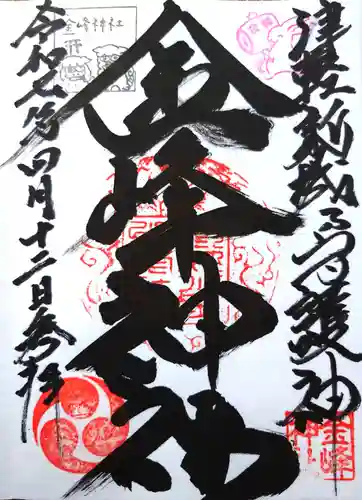 津軽新城の守護神
金峰神社
令和七年四月十二日参拝
金峰神社
金峰神社